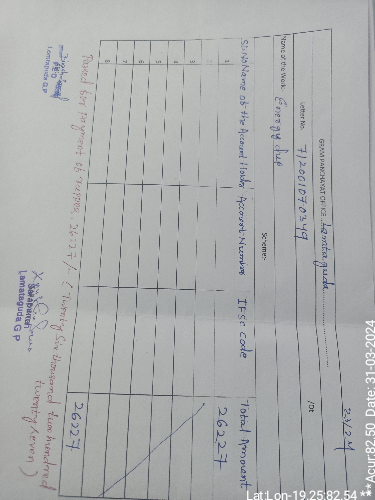 GRAMA PANCHAYAT OFFICE Lamtaguda
Letter No. 712001070349 /Dt
Name of the Work: Energy due
Scheme:-
Sl.No Name of the Account Holder Account Number IFSC Code Total Amount
1 26227
2
3
4
5
6
7
8
26227
Passed for payment of rupees. 26227/- (Twenty Six thousand two hundred
twenty seven)
PEO
Lamataguda G.P
Sarapanch
Lamataguda G P
Lat:Lon-19.25:82.54 **Acur:82.50 Date: 31-03-2024